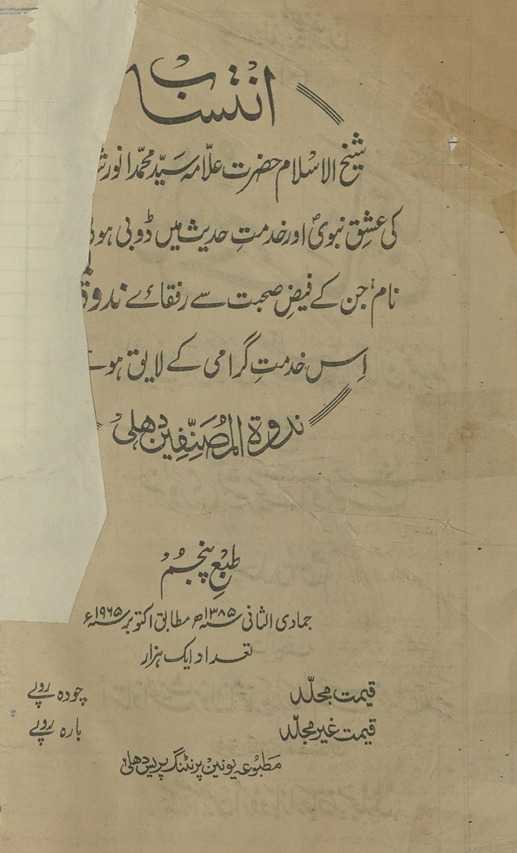 انتساب
شیخ الاسلام حضرت علّامہ سیّد محمّد انور
کی عشقِ نبویؐ اور خدمتِ حدیث میں ڈوبی ہوئی
نام، جن کے فیضِ صحبت سے رفقائے ندوۃ
اِس خدمتِ گرامی کے لایق ہو
ندوۃ المصنّفین دہلی
طبع پنجم
جمادی الثانی ۱۳۸۵ھ مطابق اکتوبر ۱۹۶۵ء
تعداد ایک ہزار
قیمت مجلّد چودہ روپے
قیمت غیر مجلّد بارہ روپے
مطبوعہ یونین پرنٹنگ پریس دہلی